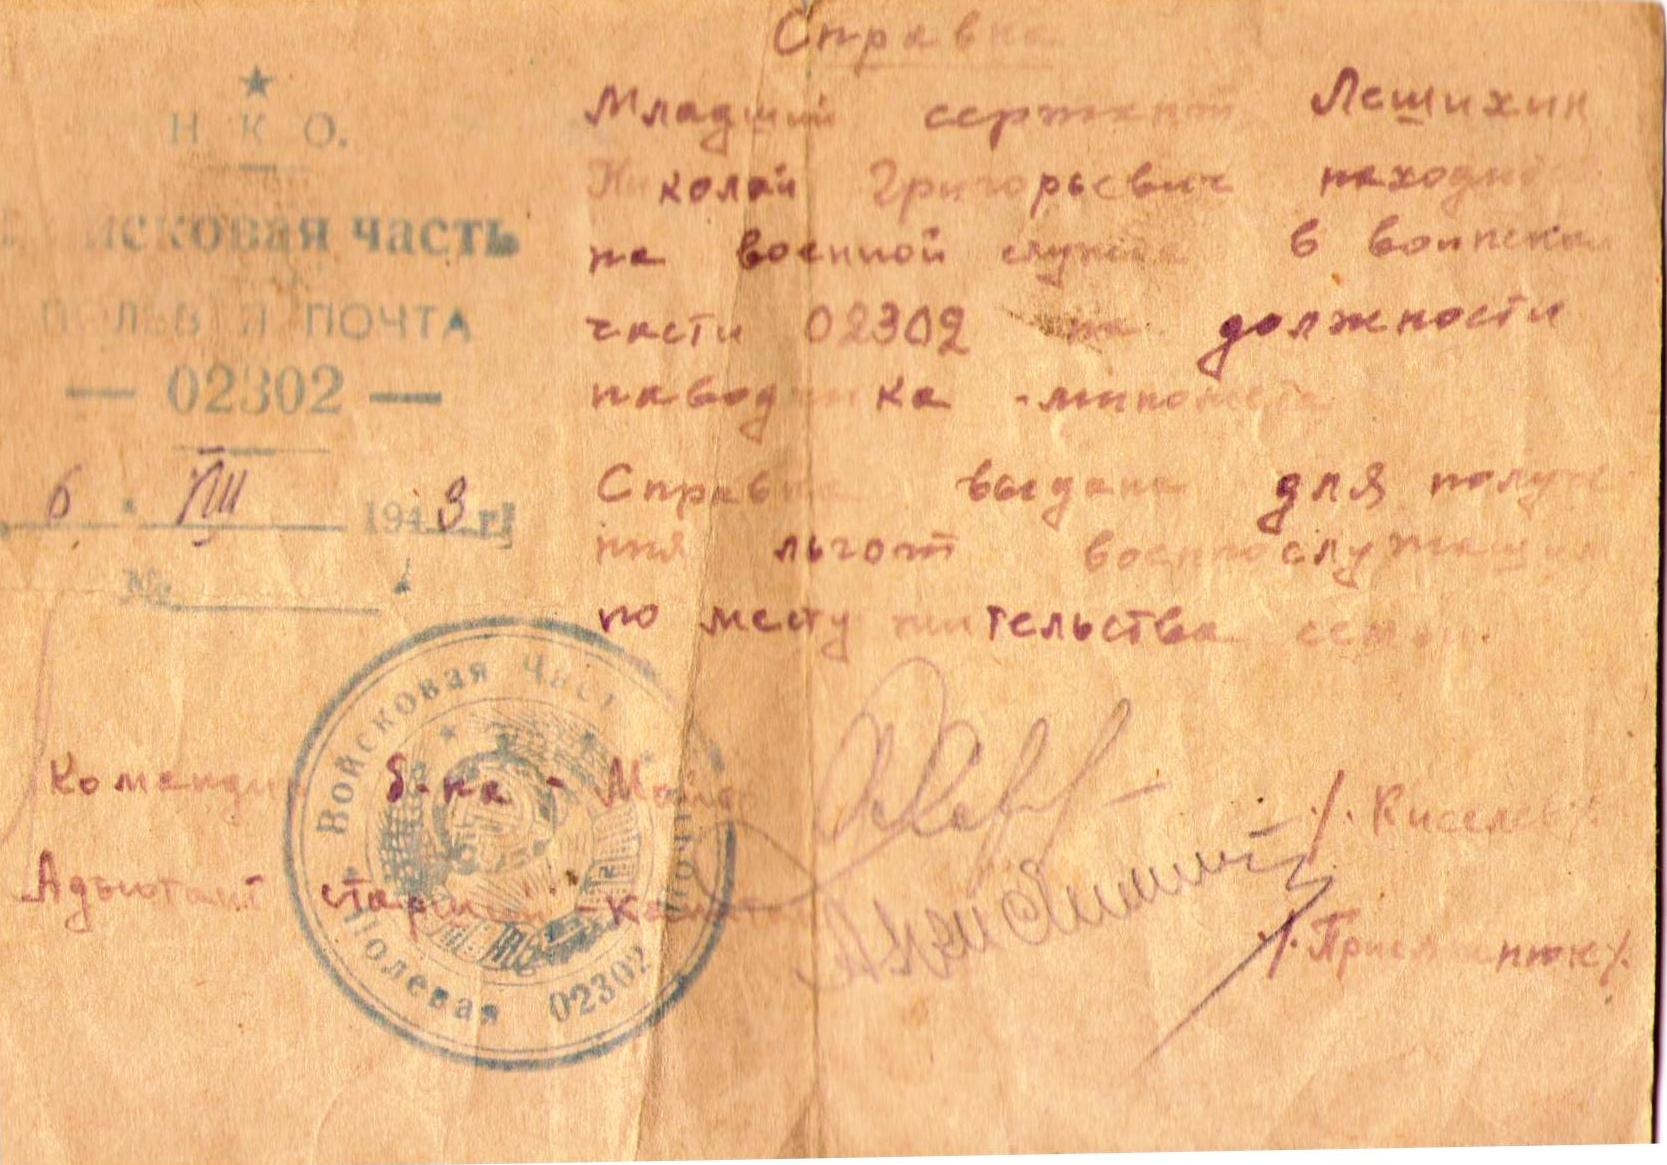 Справка
Н К О.
Войсковая часть
ПОЛЕВАЯ ПОЧТА
— 02302 —
6 " VIII 1943 г.
№
Младший сержант Лешихин
Николай Григорьевич находит
на военной службе в воинской
части 02302 на должности
наводчика - миномета
Справка выдана для получе
ния льгот военнослужащим
по месту жительства семьи.
Командир б-на - Майор /. Киселев/.
Адъютант старший - капитан /. /.
Войсковая Часть
Полевая почта 02302